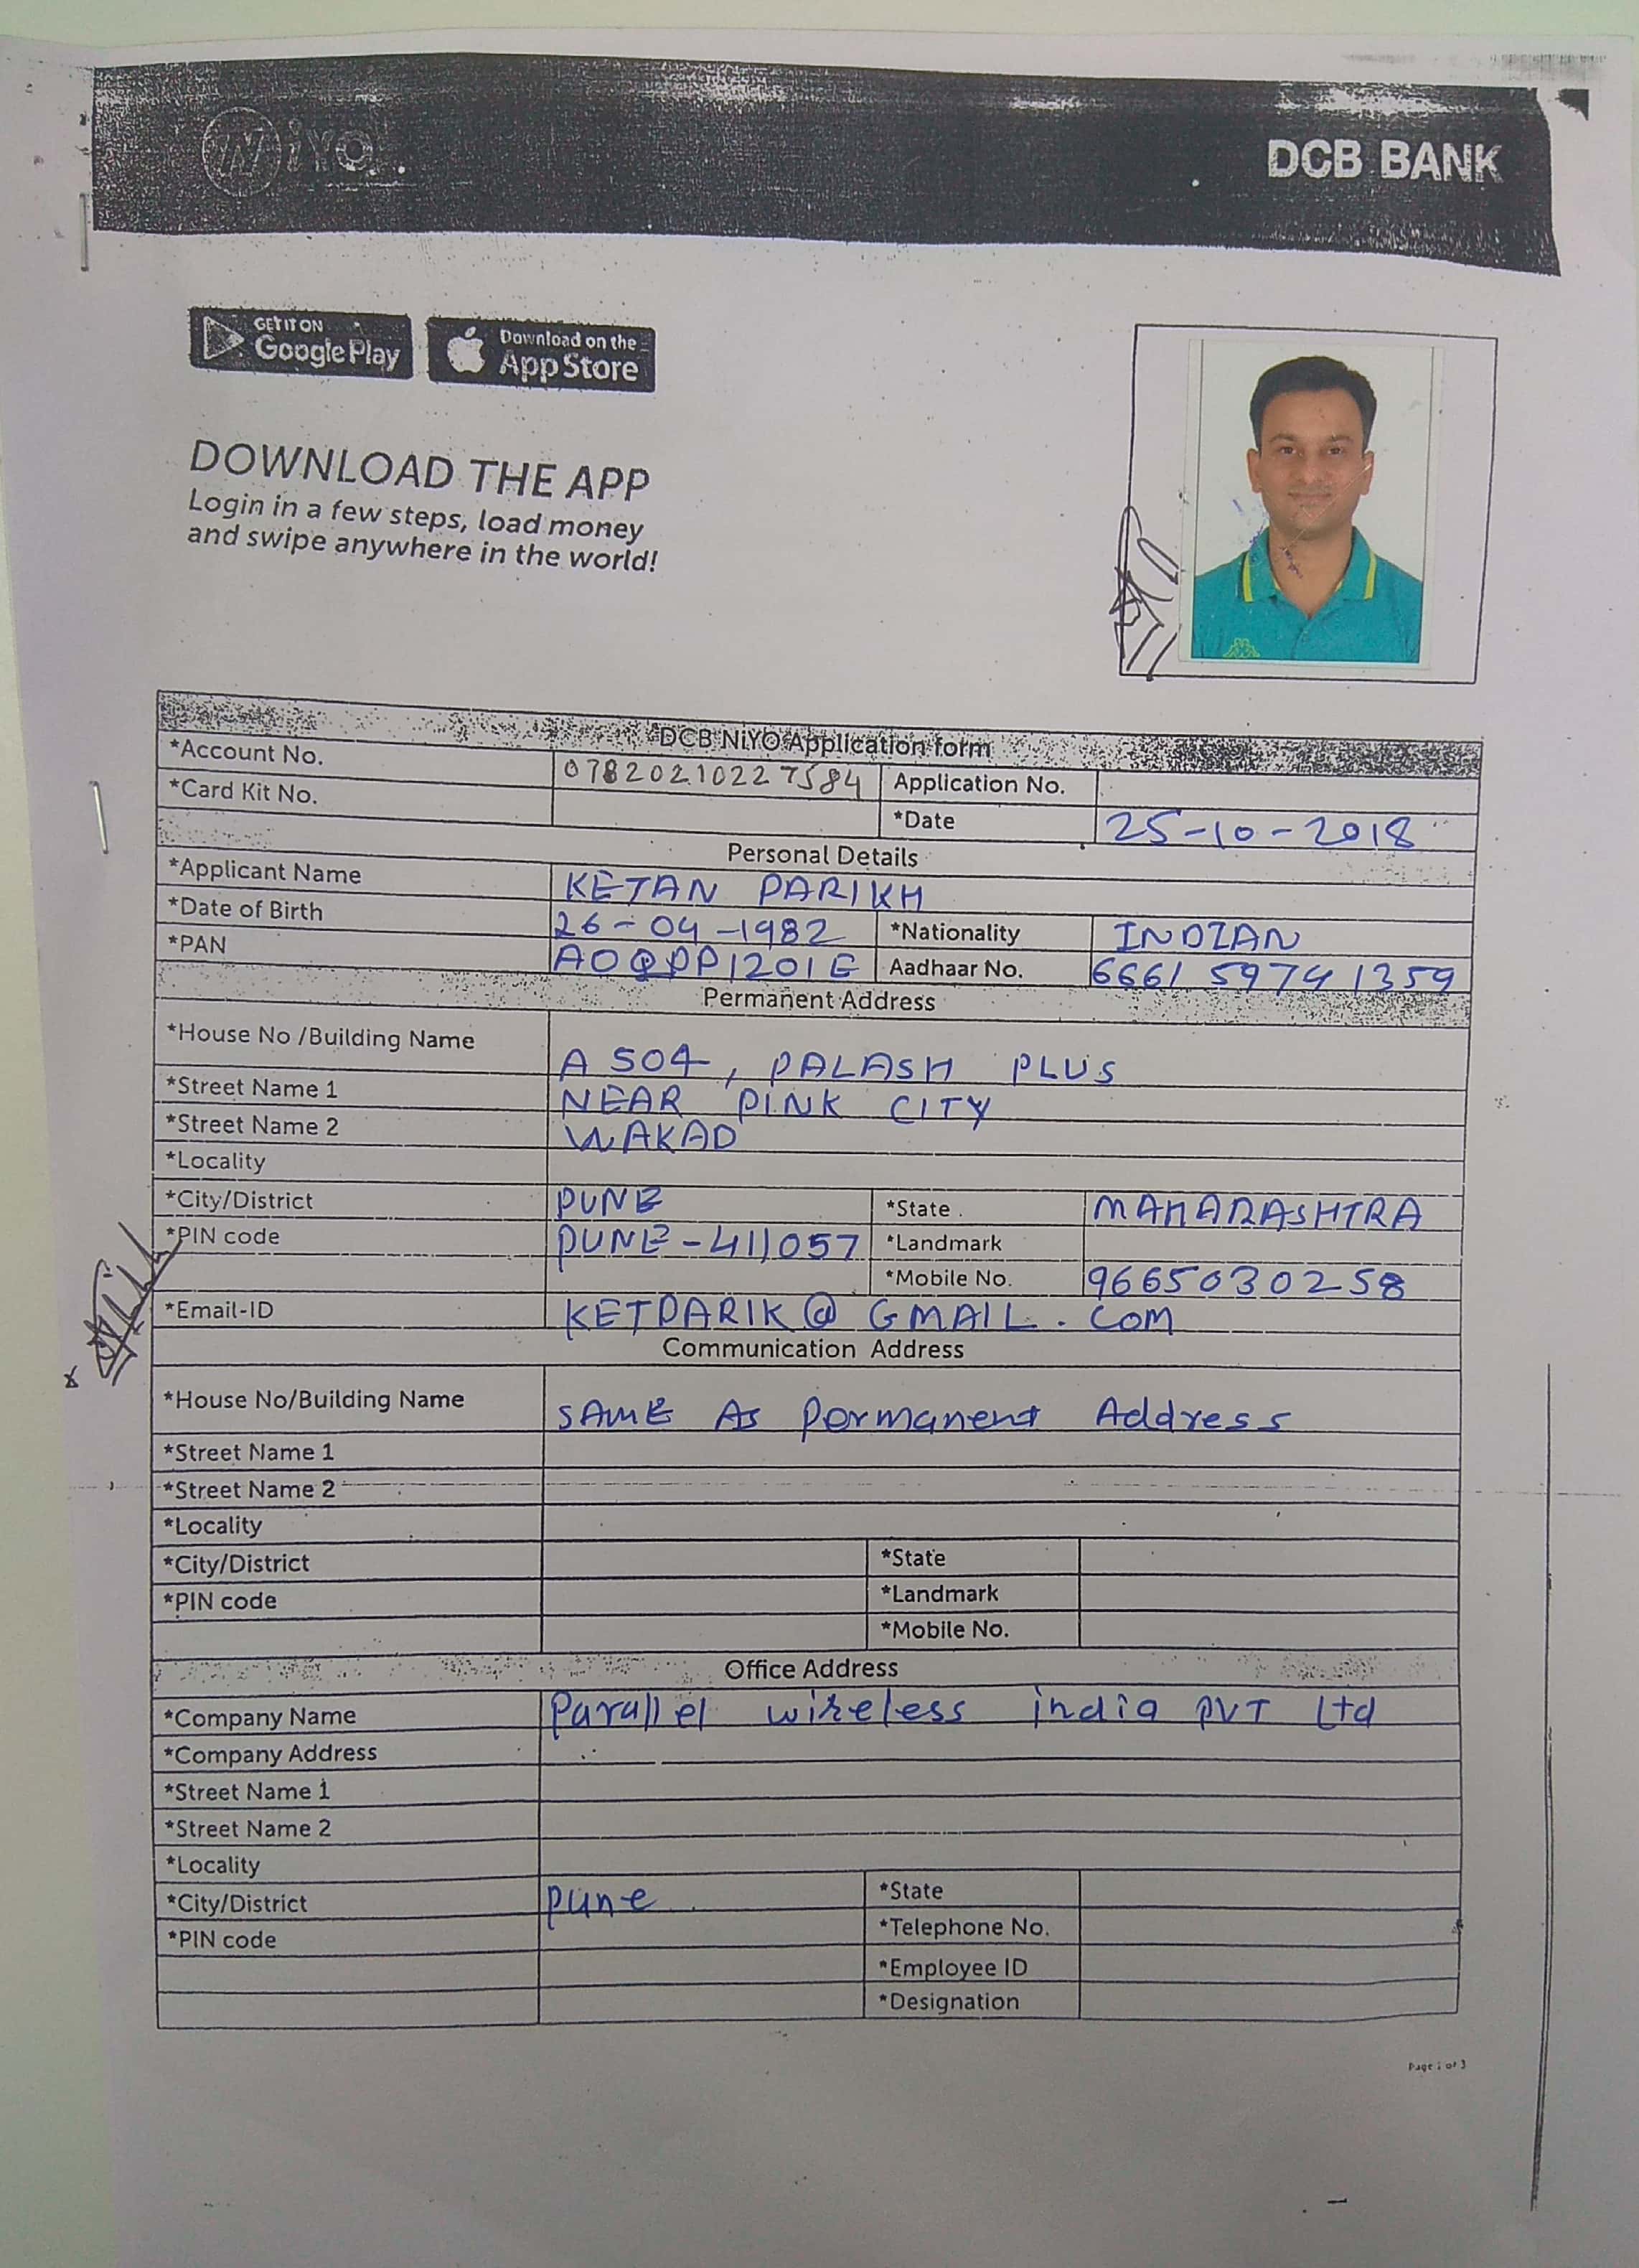 NiYO
DCB BANK
GET IT ON
Google Play
Download on the
App Store
DOWNLOAD THE APP
Login in a few steps, load money
and swipe anywhere in the world!
DCB NiYO Application form
*Account No. 07820210227584 Application No.
*Card Kit No. *Date 25-10-2018
Personal Details
*Applicant Name KETAN PARIKH
*Date of Birth 26-04-1982 *Nationality INDIAN
*PAN AOQPP1201E Aadhaar No. 6661 5974 1359
Permanent Address
*House No /Building Name A 504, PALASH PLUS
*Street Name 1 NEAR PINK CITY
*Street Name 2 WAKAD
*Locality
*City/District PUNE *State MAHARASHTRA
*PIN code PUNE-411057 *Landmark
*Mobile No. 9665030258
*Email-ID KETPARIK@GMAIL.COM
Communication Address
*House No/Building Name SAME AS Permanent Address
*Street Name 1
*Street Name 2
*Locality
*City/District *State
*PIN code *Landmark
*Mobile No.
Office Address
*Company Name Parallel wireless india PVT Ltd
*Company Address
*Street Name 1
*Street Name 2
*Locality
*City/District pune *State
*PIN code *Telephone No.
*Employee ID
*Designation
Page 1 of 3